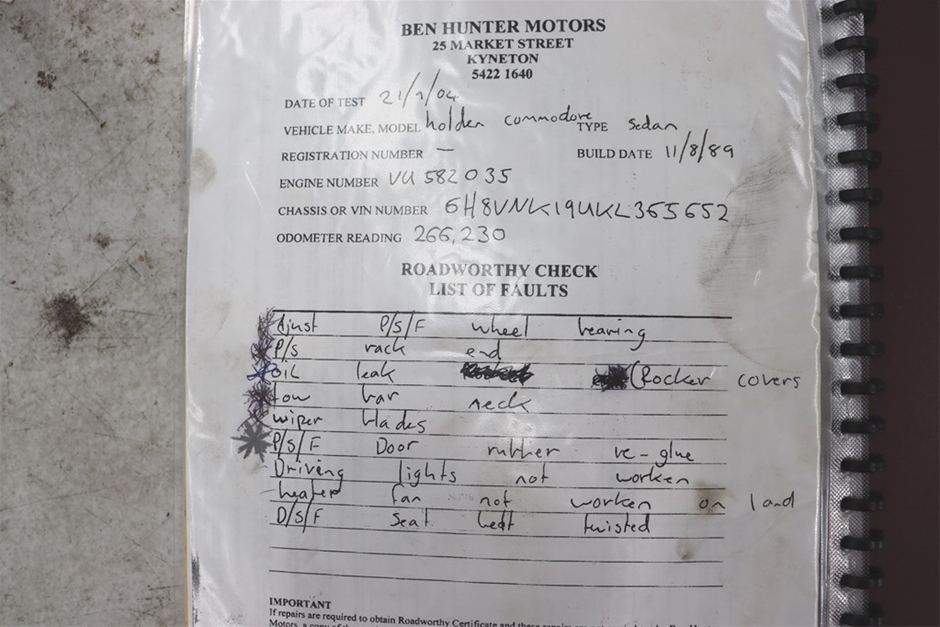 BEN HUNTER MOTORS
25 MARKET STREET
KYNETON
5422 1640
DATE OF TEST 21/1/04
VEHICLE MAKE, MODEL holden commodore TYPE Sedan
REGISTRATION NUMBER — BUILD DATE 11/8/89
ENGINE NUMBER VU 582035
CHASSIS OR VIN NUMBER 6H8VNK19UKL365652
ODOMETER READING 266,230
ROADWORTHY CHECK
LIST OF FAULTS
Adjust P/S/F wheel bearing
P/S rack end
oil leak (Rocker covers
tow bar neck
wiper blades
P/S/F Door rubber re-glue
Driving lights not worken
heater fan not worken on 1 and
D/S/F Seat belt twisted
IMPORTANT
If repairs are required to obtain Roadworthy Certificate and these repairs are not